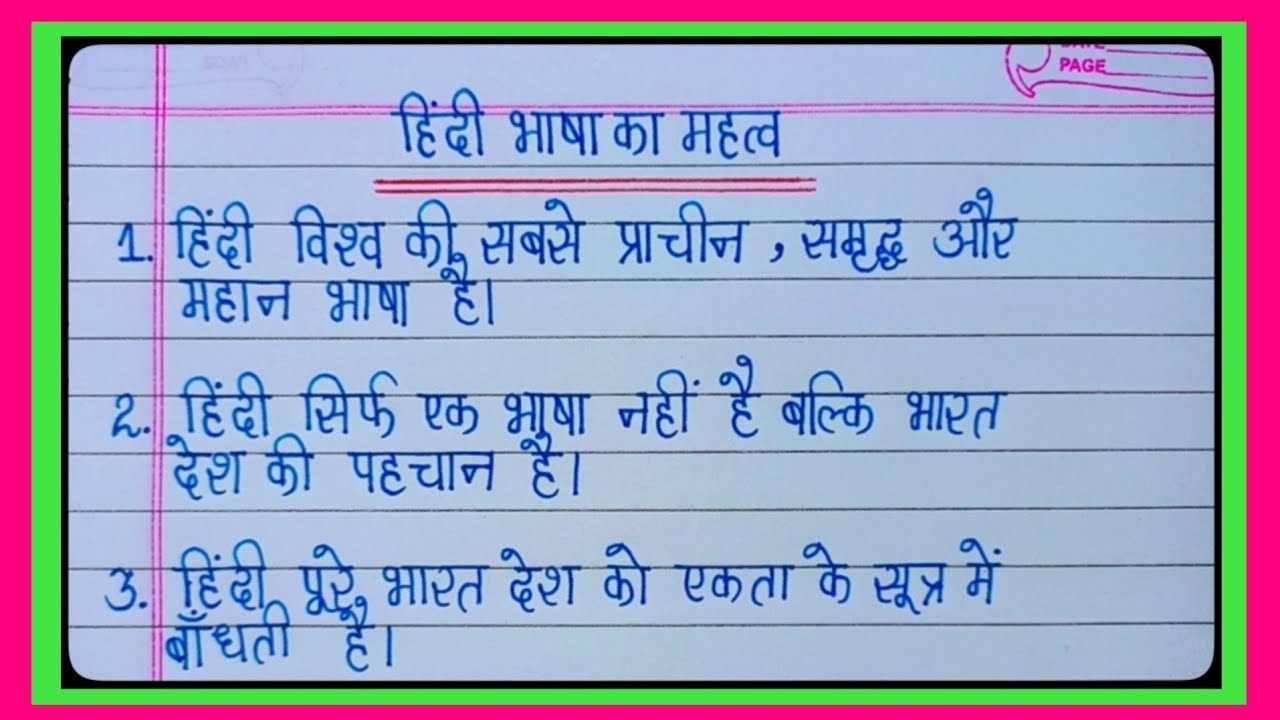 DATE
PAGE
हिंदी भाषा का महत्व
1. हिंदी विश्व की सबसे प्राचीन , समृद्ध और
महान भाषा है।
2. हिंदी सिर्फ एक भाषा नहीं है बल्कि भारत
देश की पहचान है।
3. हिंदी पूरे भारत देश को एकता के सूत्र में
बाँधती है।